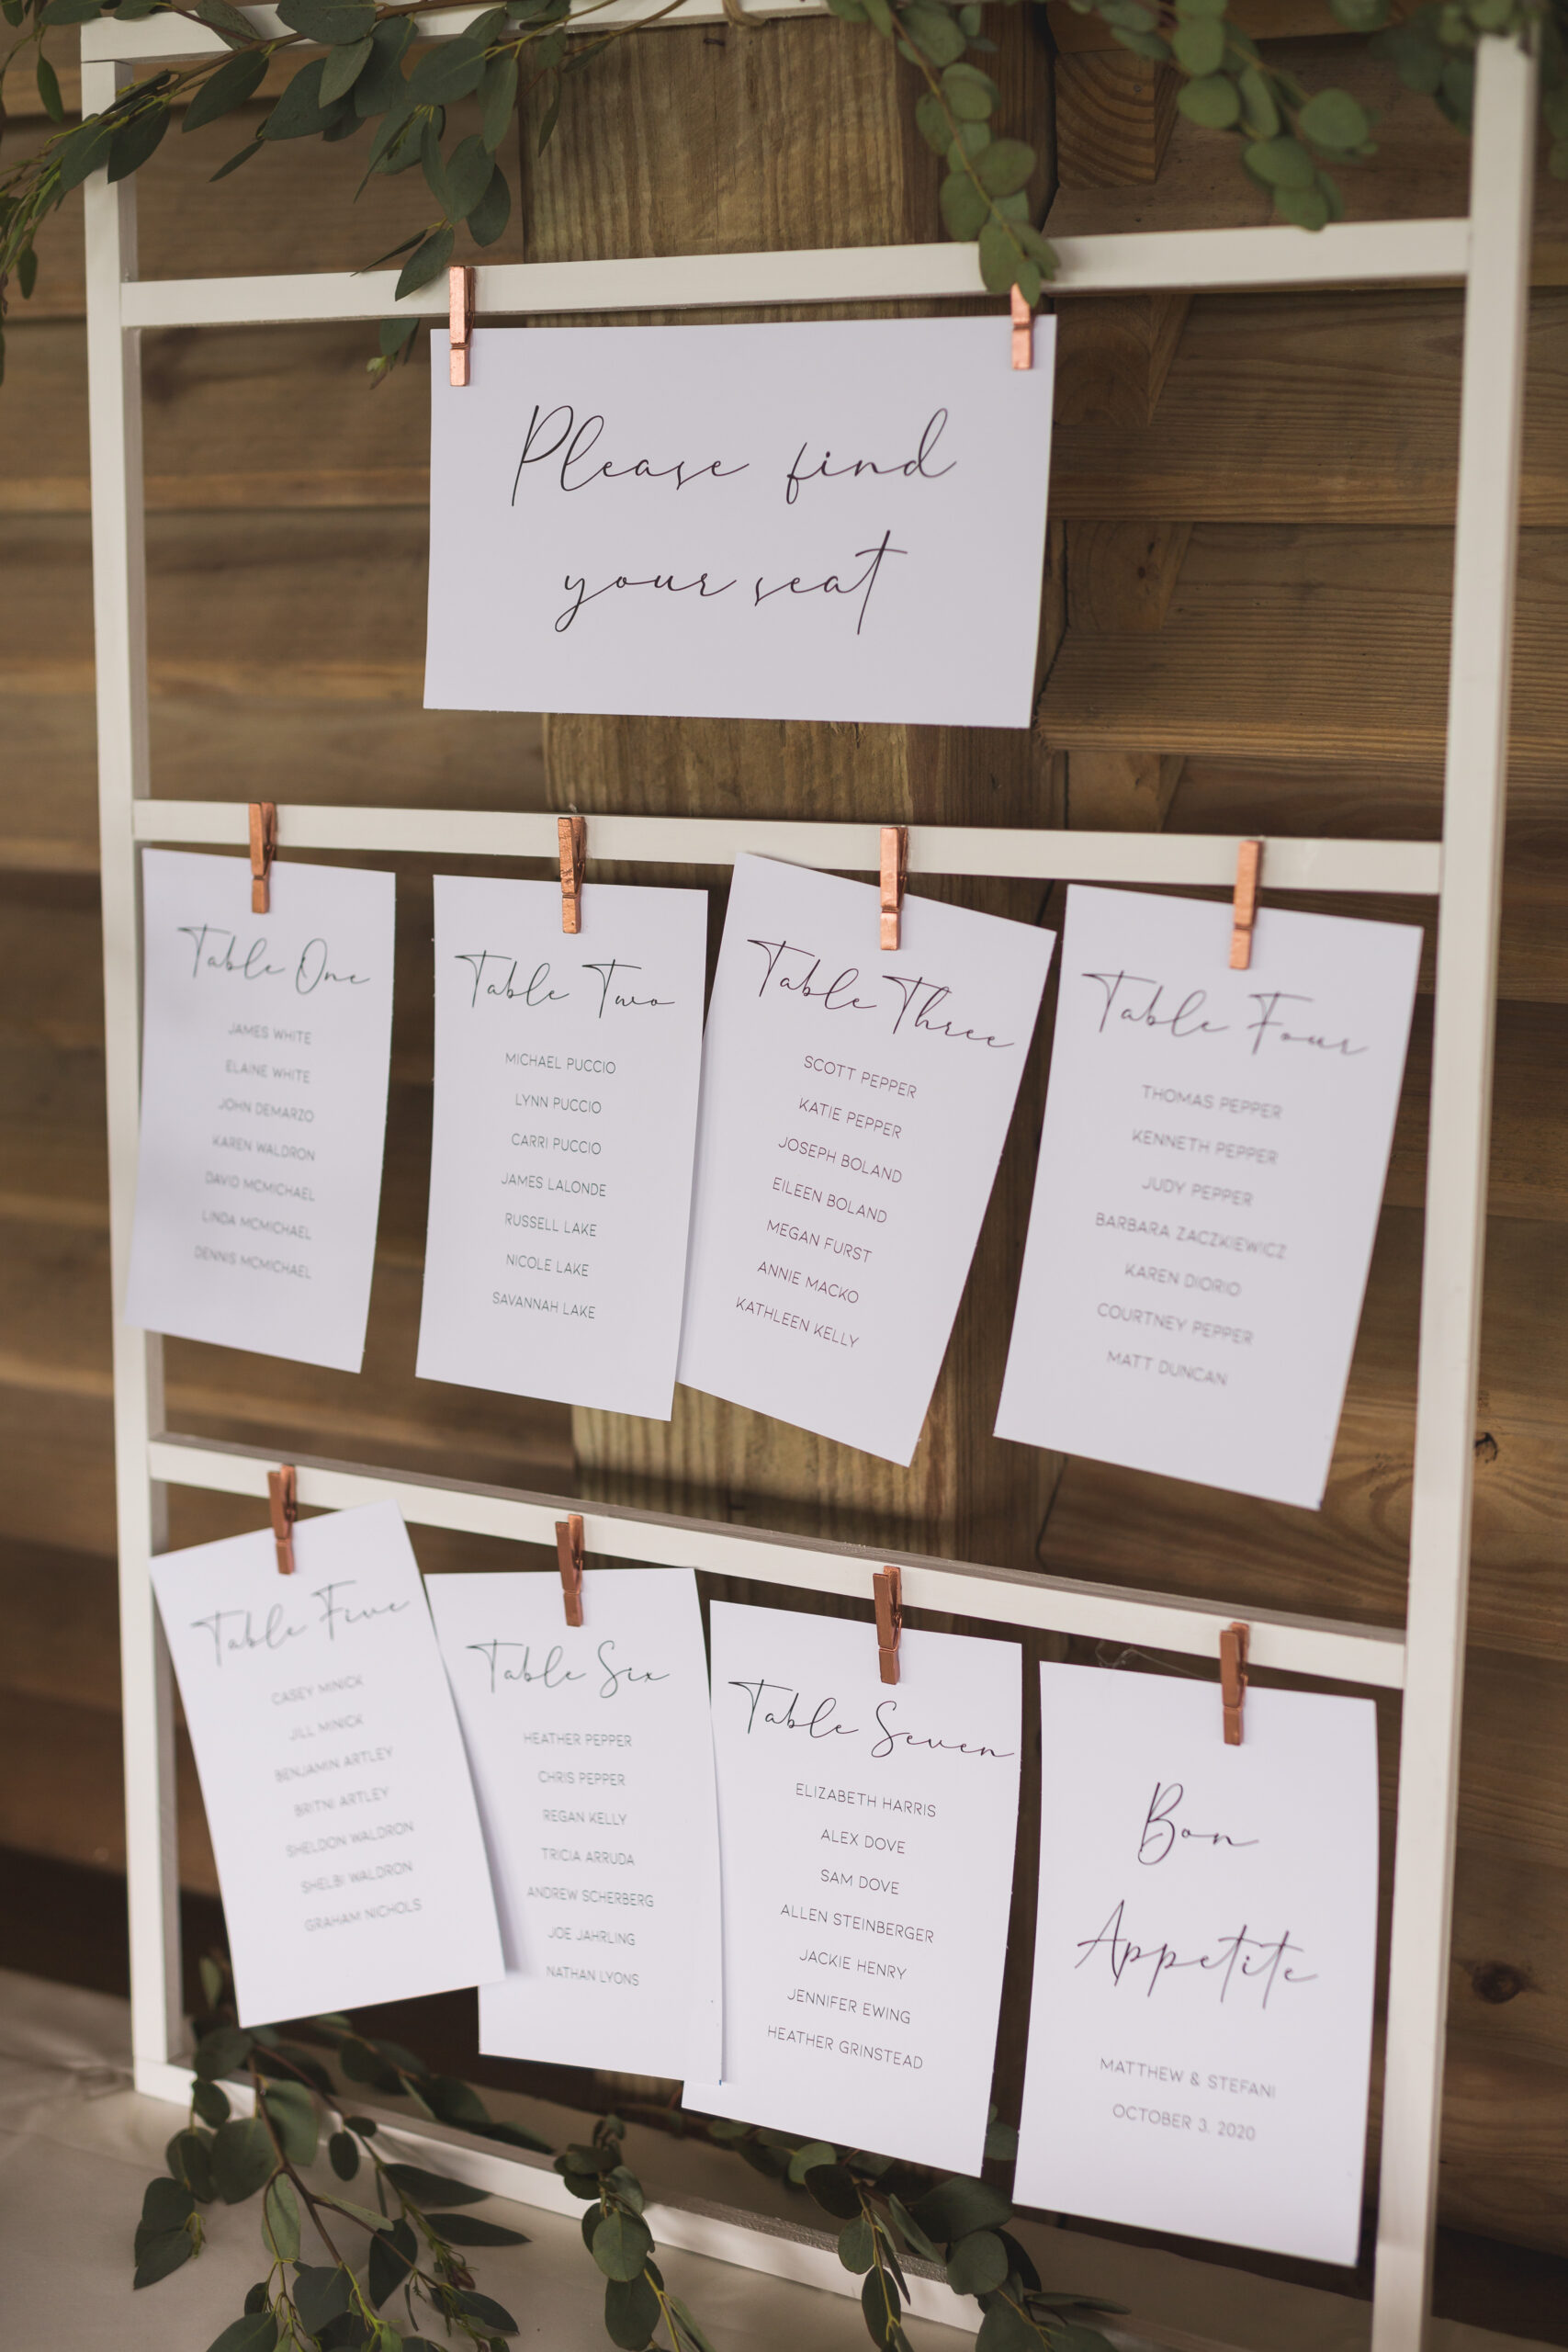 Please find
your seat
Table One
JAMES WHITE
ELAINE WHITE
JOHN DEMARZO
KAREN WALDRON
DAVID MCMICHAEL
LINDA MCMICHAEL
DENNIS MCMICHAEL
Table Two
MICHAEL PUCCIO
LYNN PUCCIO
CARRI PUCCIO
JAMES LALONDE
RUSSELL LAKE
NICOLE LAKE
SAVANNAH LAKE
Table Three
SCOTT PEPPER
KATIE PEPPER
JOSEPH BOLAND
EILEEN BOLAND
MEGAN FURST
ANNIE MACKO
KATHLEEN KELLY
Table Four
THOMAS PEPPER
KENNETH PEPPER
JUDY PEPPER
BARBARA ZACZKIEWICZ
KAREN DIORIO
COURTNEY PEPPER
MATT DUNCAN
Table Five
CASEY MINICK
JILL MINICK
BENJAMIN ARTLEY
BRITNI ARTLEY
SHELDON WALDRON
SHELBI WALDRON
GRAHAM NICHOLS
Table Six
HEATHER PEPPER
CHRIS PEPPER
REGAN KELLY
TRICIA ARRUDA
ANDREW SCHERBERG
JOE JAHRLING
NATHAN LYONS
Table Seven
ELIZABETH HARRIS
ALEX DOVE
SAM DOVE
ALLEN STEINBERGER
JACKIE HENRY
JENNIFER EWING
HEATHER GRINSTEAD
Bon
Appetite
MATTHEW & STEFANI
OCTOBER 3, 2020